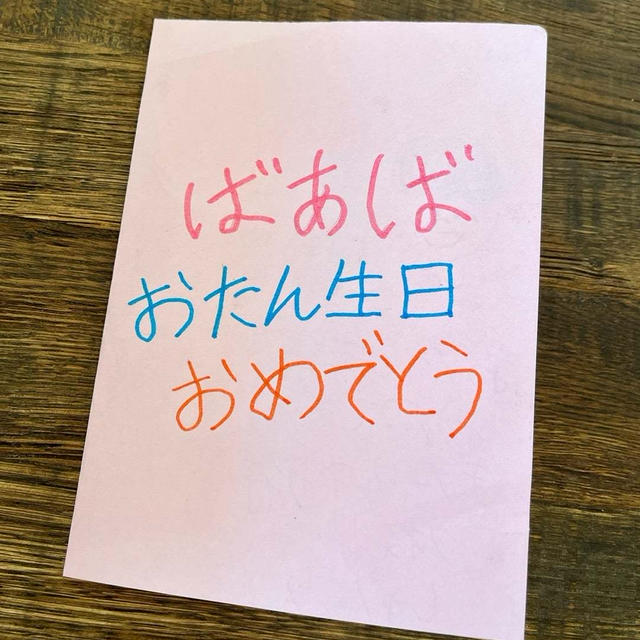 ばあば
おたん生日
おめでとう